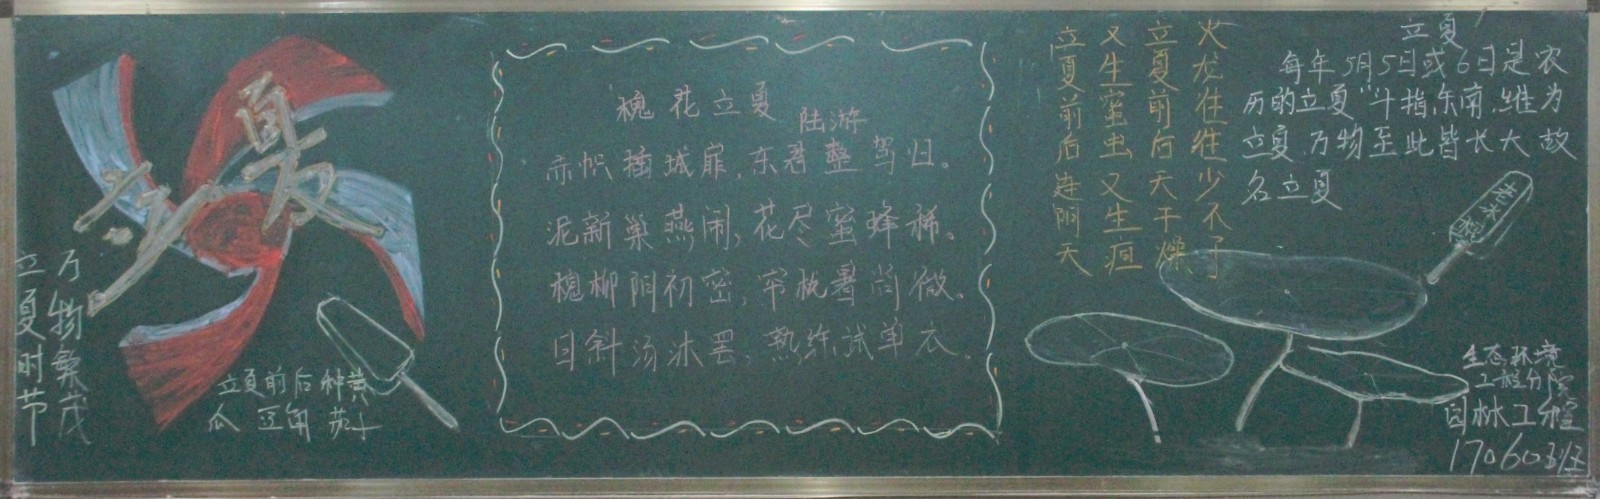 立夏
万物繁茂
立夏时节
立夏前后种黄
瓜 豆角 茄子
槐花立夏
陆游
赤帜插城扉,东君整驾归。
泥新巢燕闹,花尽蜜蜂稀。
槐柳阴初密,帘栊暑尚微。
日斜汤沐罢,熟练试单衣。
火龙往往少不了
立夏前后天干燥
又生蜜虫又生疸
立夏前后连阴天
立夏
每年5月5日或6日是农
历的立夏"斗指东南.维为
立夏.万物至此皆长大.故
名立夏
老冰
生态环境
工程分院
园林工程
17060班